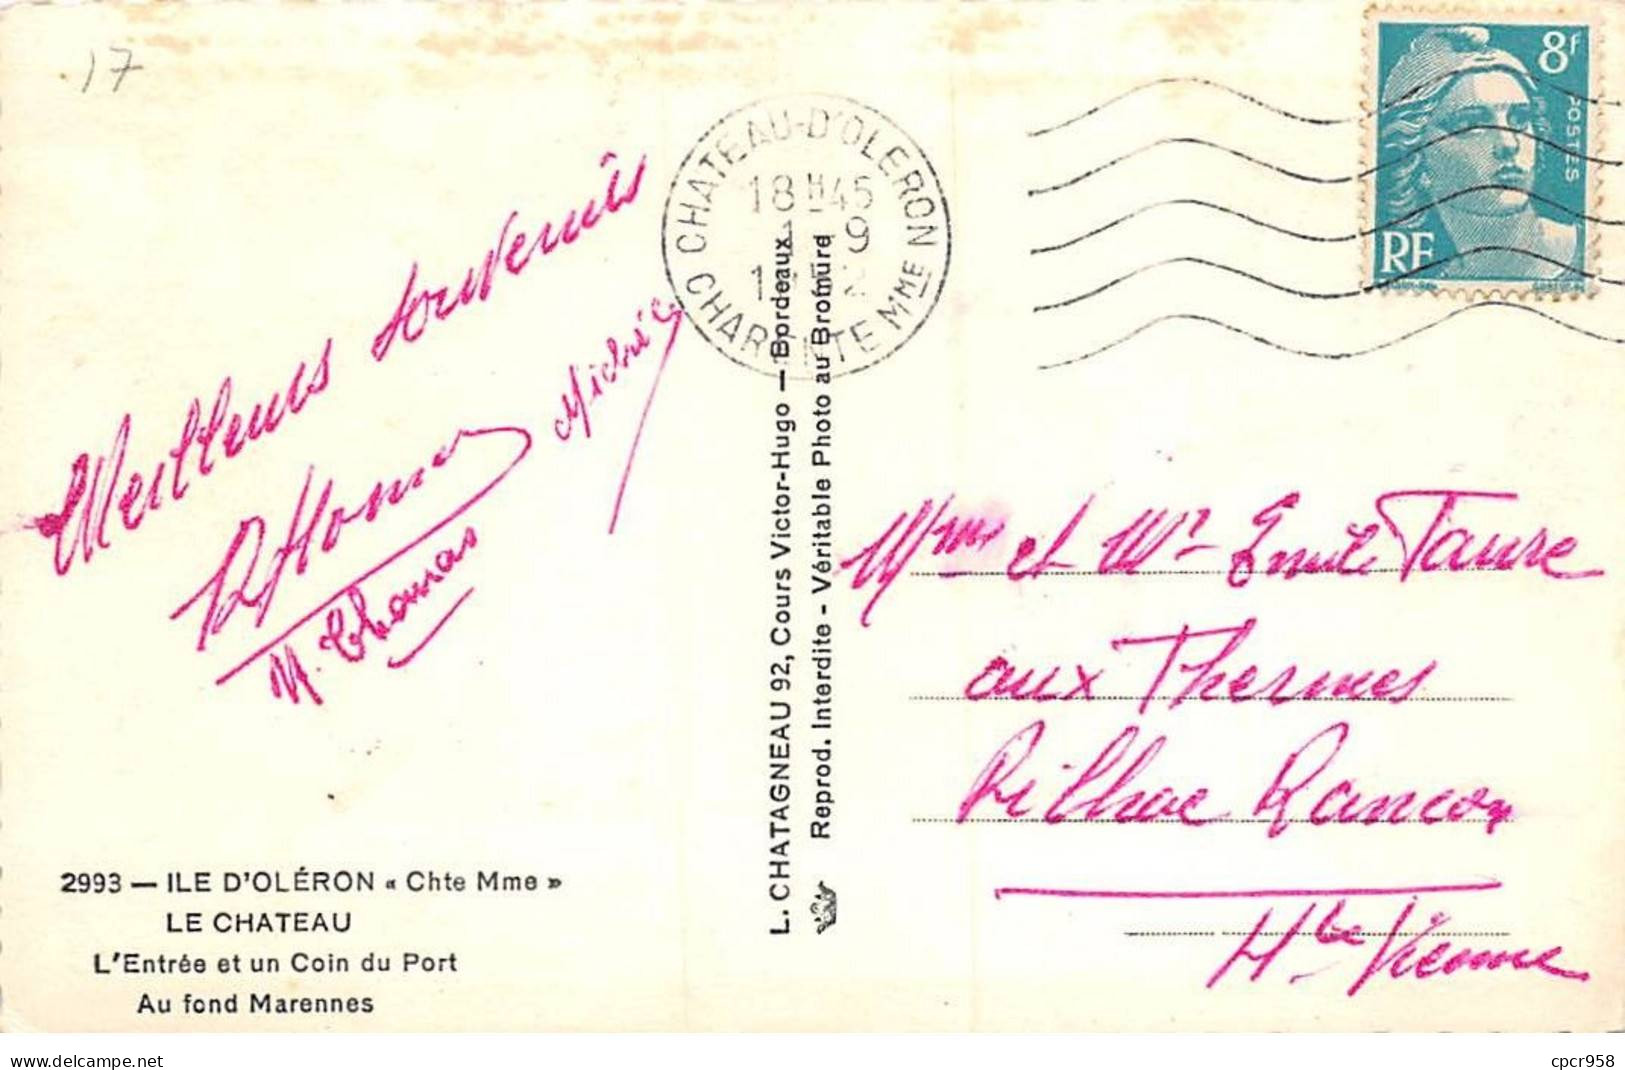 17
CHATEAU-D'OLERON
18H45
9
CHARENTE MME
8F
POSTES
RF
Meilleurs souvenirs
Thomas
Michèle
M. Thomas
L. CHATAGNEAU 92, Cours Victor-Hugo — Bordeaux
Reprod. Interdite - Véritable Photo au Bromure
Mme et Mr Emile Faure
aux Thermes
Rilhac Rancon
Hte Vienne
2993 — ILE D'OLÉRON « Chte Mme »
LE CHATEAU
L'Entrée et un Coin du Port
Au fond Marennes
www.delcampe.net
cpcr958